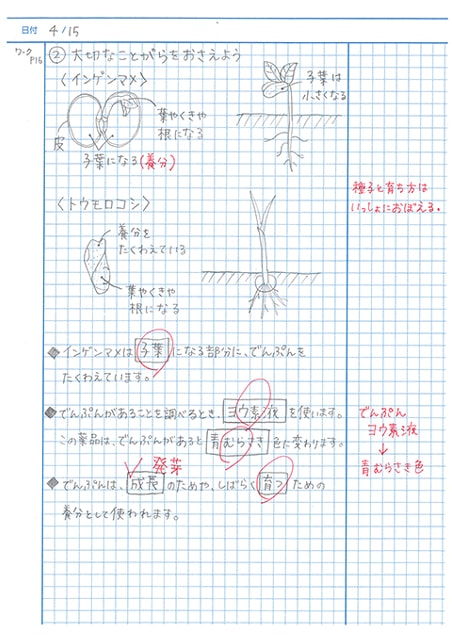 日付 4/15
ワーク
P16
② 大切なことがらをおさえよう
〈インゲンマメ〉
子葉は
小さくなる
葉やくきや
根になる
皮
子葉になる(養分)
種子と育ち方は
いっしょにおぼえる。
〈トウモロコシ〉
養分を
たくわえている
葉やくきや
根になる
◆インゲンマメは 子葉 になる部分に、でんぷんを
たくわえています。
◆でんぷんがあることを調べるとき、ヨウ素液 を使います。
この薬品は、でんぷんがあると 青むらさき 色に変わります。
でんぷん
ヨウ素液
↓
青むらさき色
発芽
◆でんぷんは、成長 のためや、しばらく 育つ ための
養分として使われます。